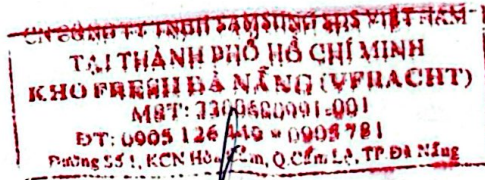 CN CÔNG TY TNHH SAMSUNG SDS VIỆT NAM
TẠI THÀNH PHỐ HỒ CHÍ MINH
KHO FRESH ĐÀ NẴNG (VFRACHT)
MST:
ĐT: 0905 126 - 0905 781
Đường Số 1, KCN Hòa Cầm, Q.Cẩm Lệ, TP.Đà Nẵng